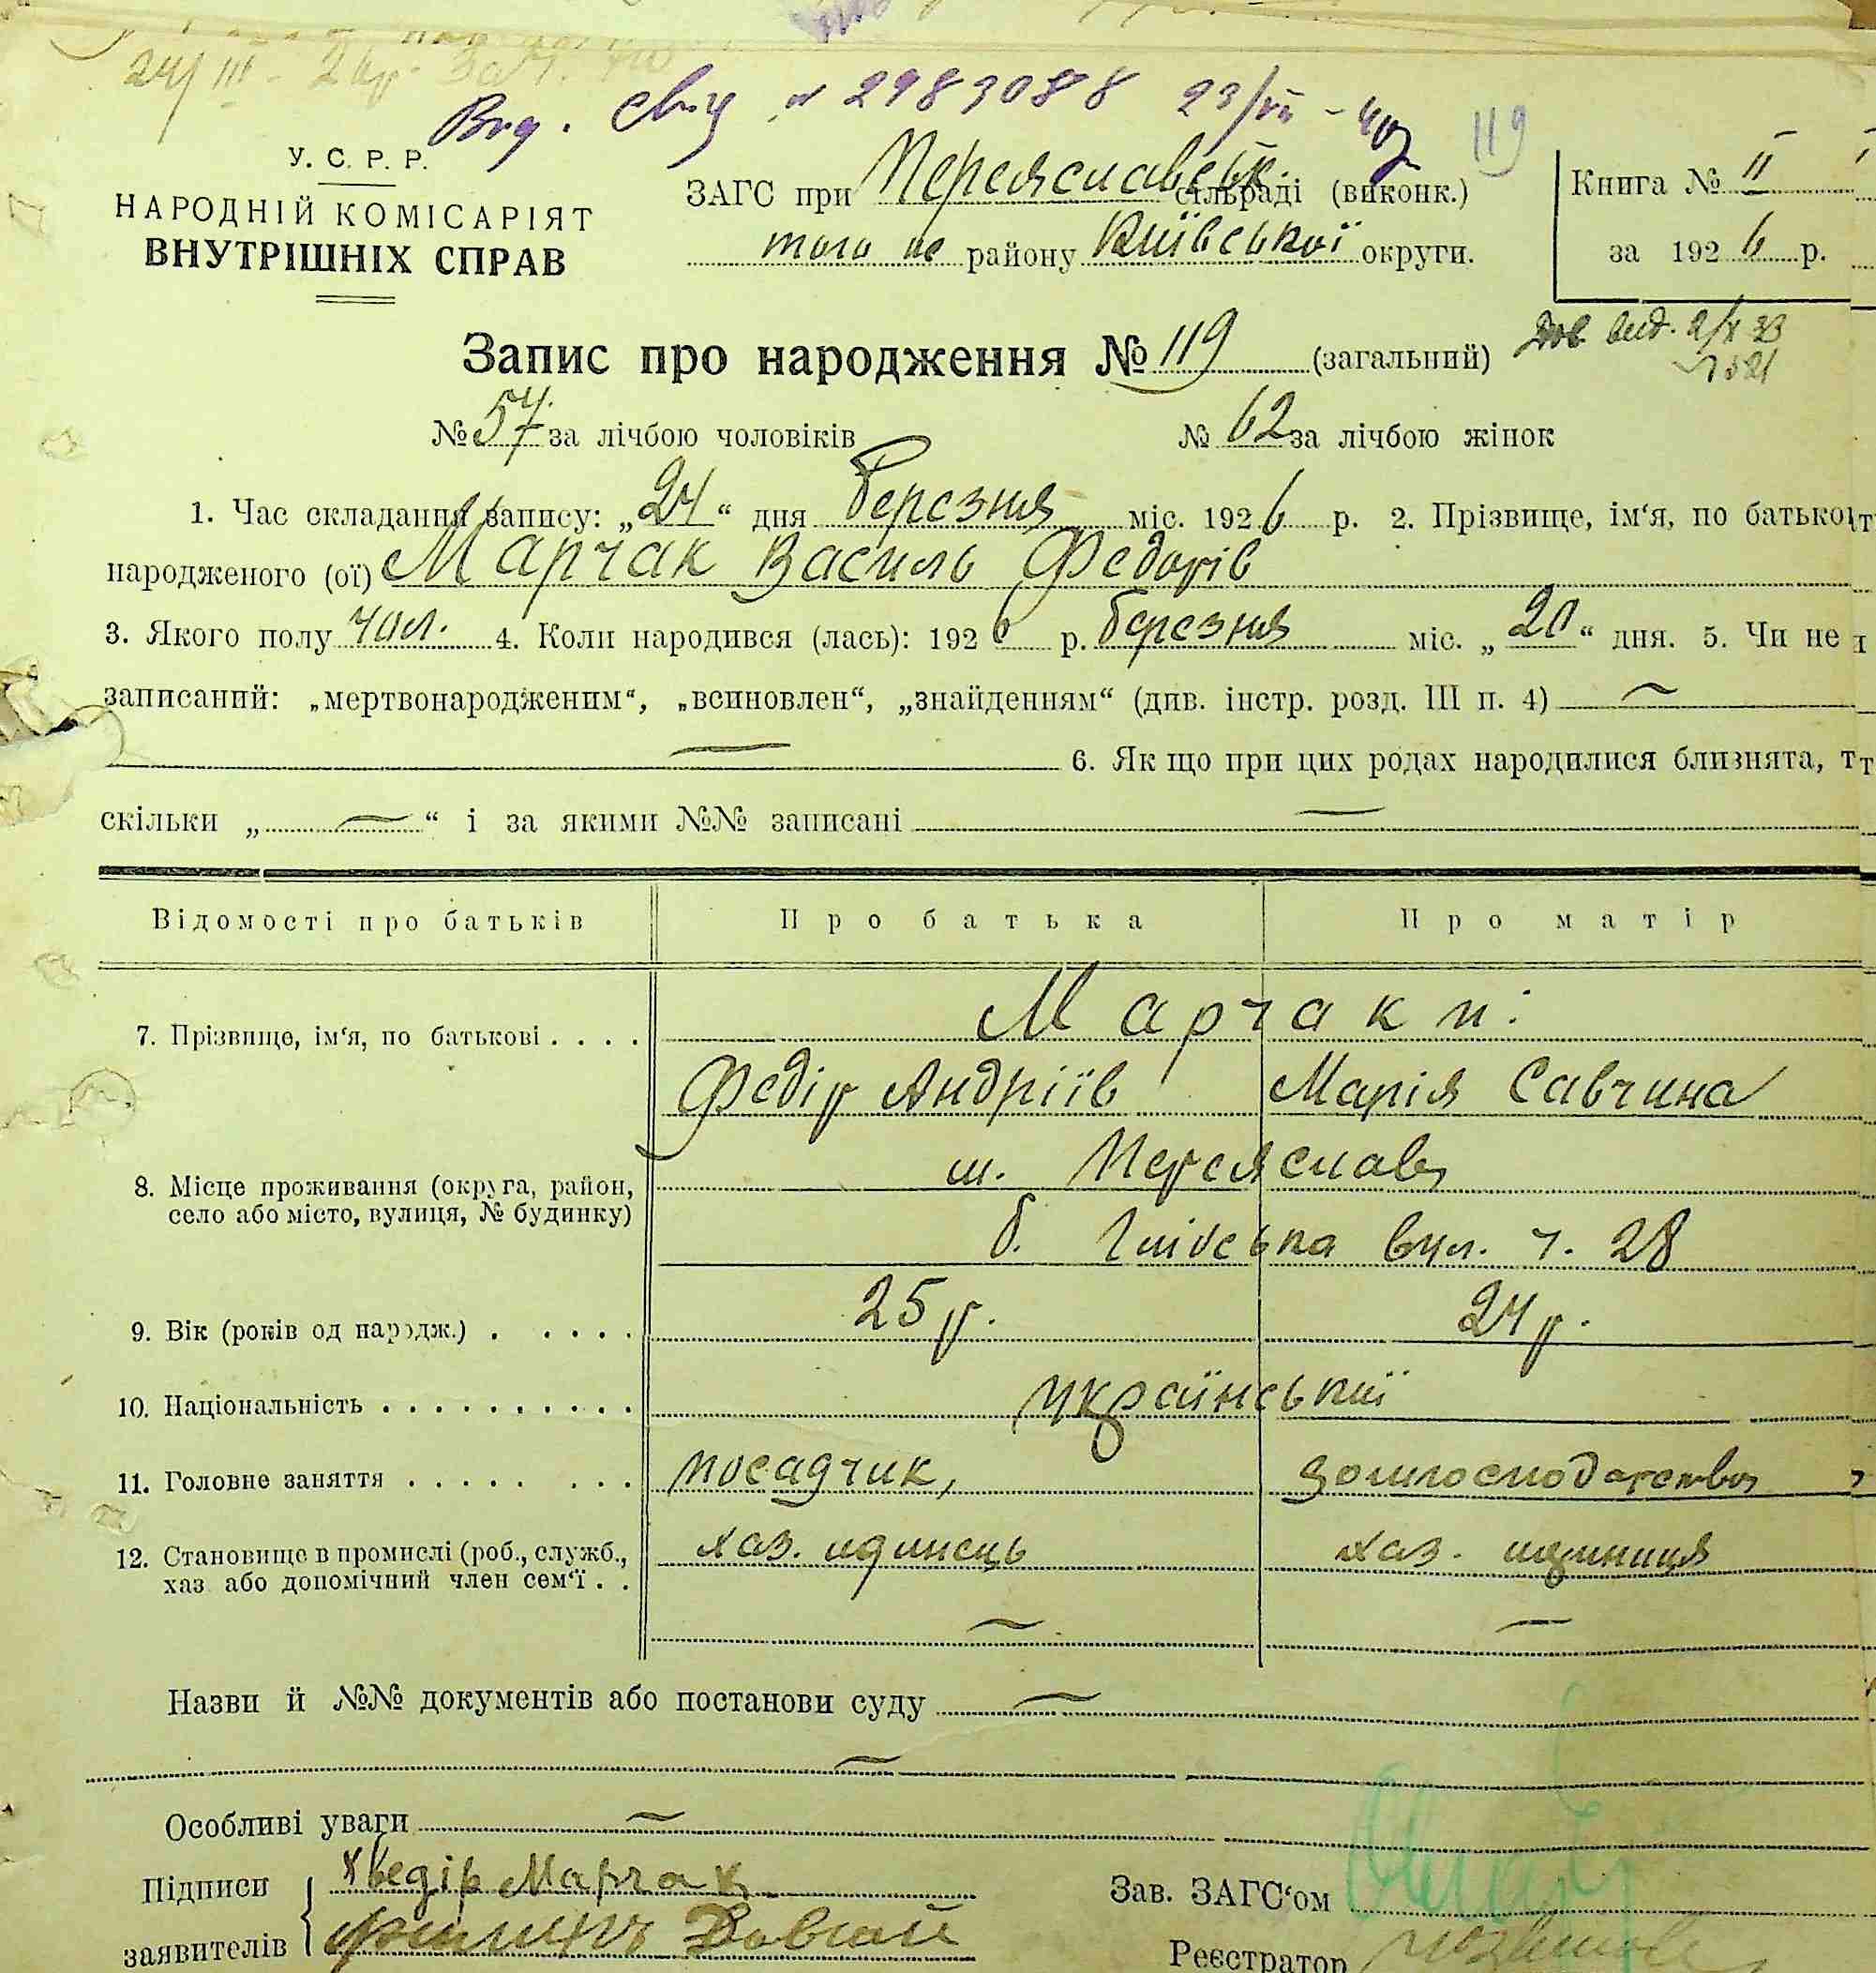 24/III
Вид. свид. № 2983088 23/VII - 40
119
У. С. Р. Р.
НАРОДНІЙ КОМІСАРІЯТ
ВНУТРІШНІХ СПРАВ
ЗАГС при Переяславськ. сільраді (виконк.)
того ж району Київської округи.
Книга № II
за 1926 р.
Дов. вид. 2/X 33
Запис про народження № 119 (загальний)
№ 57 за лічбою чоловіків № 62 за лічбою жінок
1. Час складання запису: „24“ дня березня міс. 1926 р. 2. Прізвище, ім‘я, по батькові
народженого (ої) Марчак Василь Федорів
3. Якого полу чол. 4. Коли народився (лась): 1926 р. березня міс. „20“ дня. 5. Чи не
записаний: „мертвонародженим“, „всиновлен“, „знайденням“ (див. інстр. розд. III п. 4) —
— 6. Як що при цих родах народилися близнята, т
скільки „—“ і за якими №№ записані —
Відомості про батьків Про батька Про матір
7. Прізвище, ім‘я, по батькові . . . . Марчаки:
Федір Андріїв Марія Савчина
8. Місце проживання (округа, район, м. Переяслав,
село або місто, вулиця, № будинку)
б. вул. ч. 28
9. Вік (років од народж.) . . . . . 25 р. 24 р.
10. Національність . . . . . . . . . . українській
11. Головне заняття . . . . . . . . посадчик,
12. Становище в промислі (роб., служб., хаз. одинець хаз. одиниця
хаз або допомічний член сем‘ї . .
— —
Назви й №№ документів або постанови суду —
—
Особливі уваги —
Підписи Хведір Марчак
заявителів
Зав. ЗАГС‘ом
Реєстратор